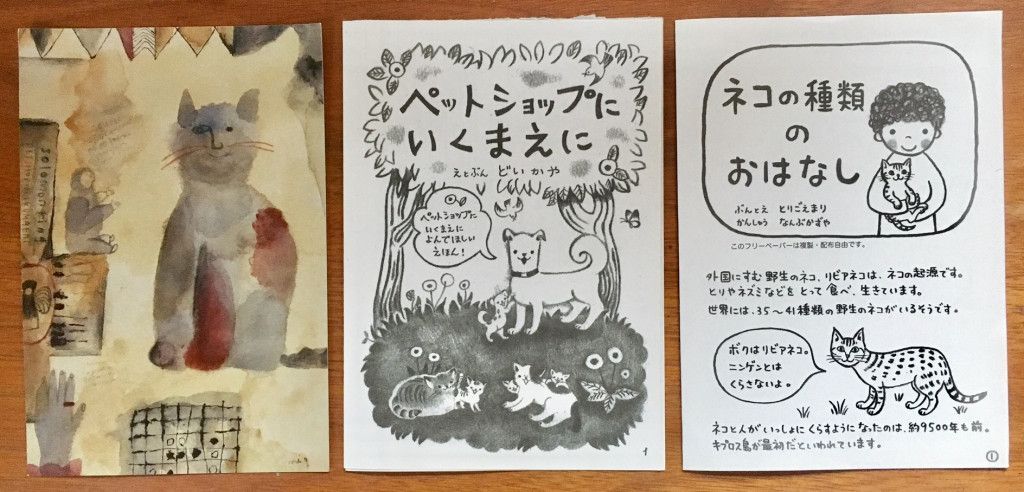 ペットショップに
いくまえに
えとぶん どいかや
ペットショップに
いくまえに
よんでほしい
えほん!
1
ネコの種類
の
おはなし
ぶんとえ とりごえまり
かんしゅう なんぶかずや
このフリーペーパーは複製・配布自由です。
外国にすむ野生のネコ、リビアネコは、ネコの起源です。
とりやネズミなどをとって食べ、生きています。
世界には、35〜41種類の野生のネコがいるそうです。
ボクはリビアネコ。
ニンゲンとは
くらさないよ。
ネコと人がいっしょにくらすようになったのは、約9500年も前。
キプロス島が最初だといわれています。
1